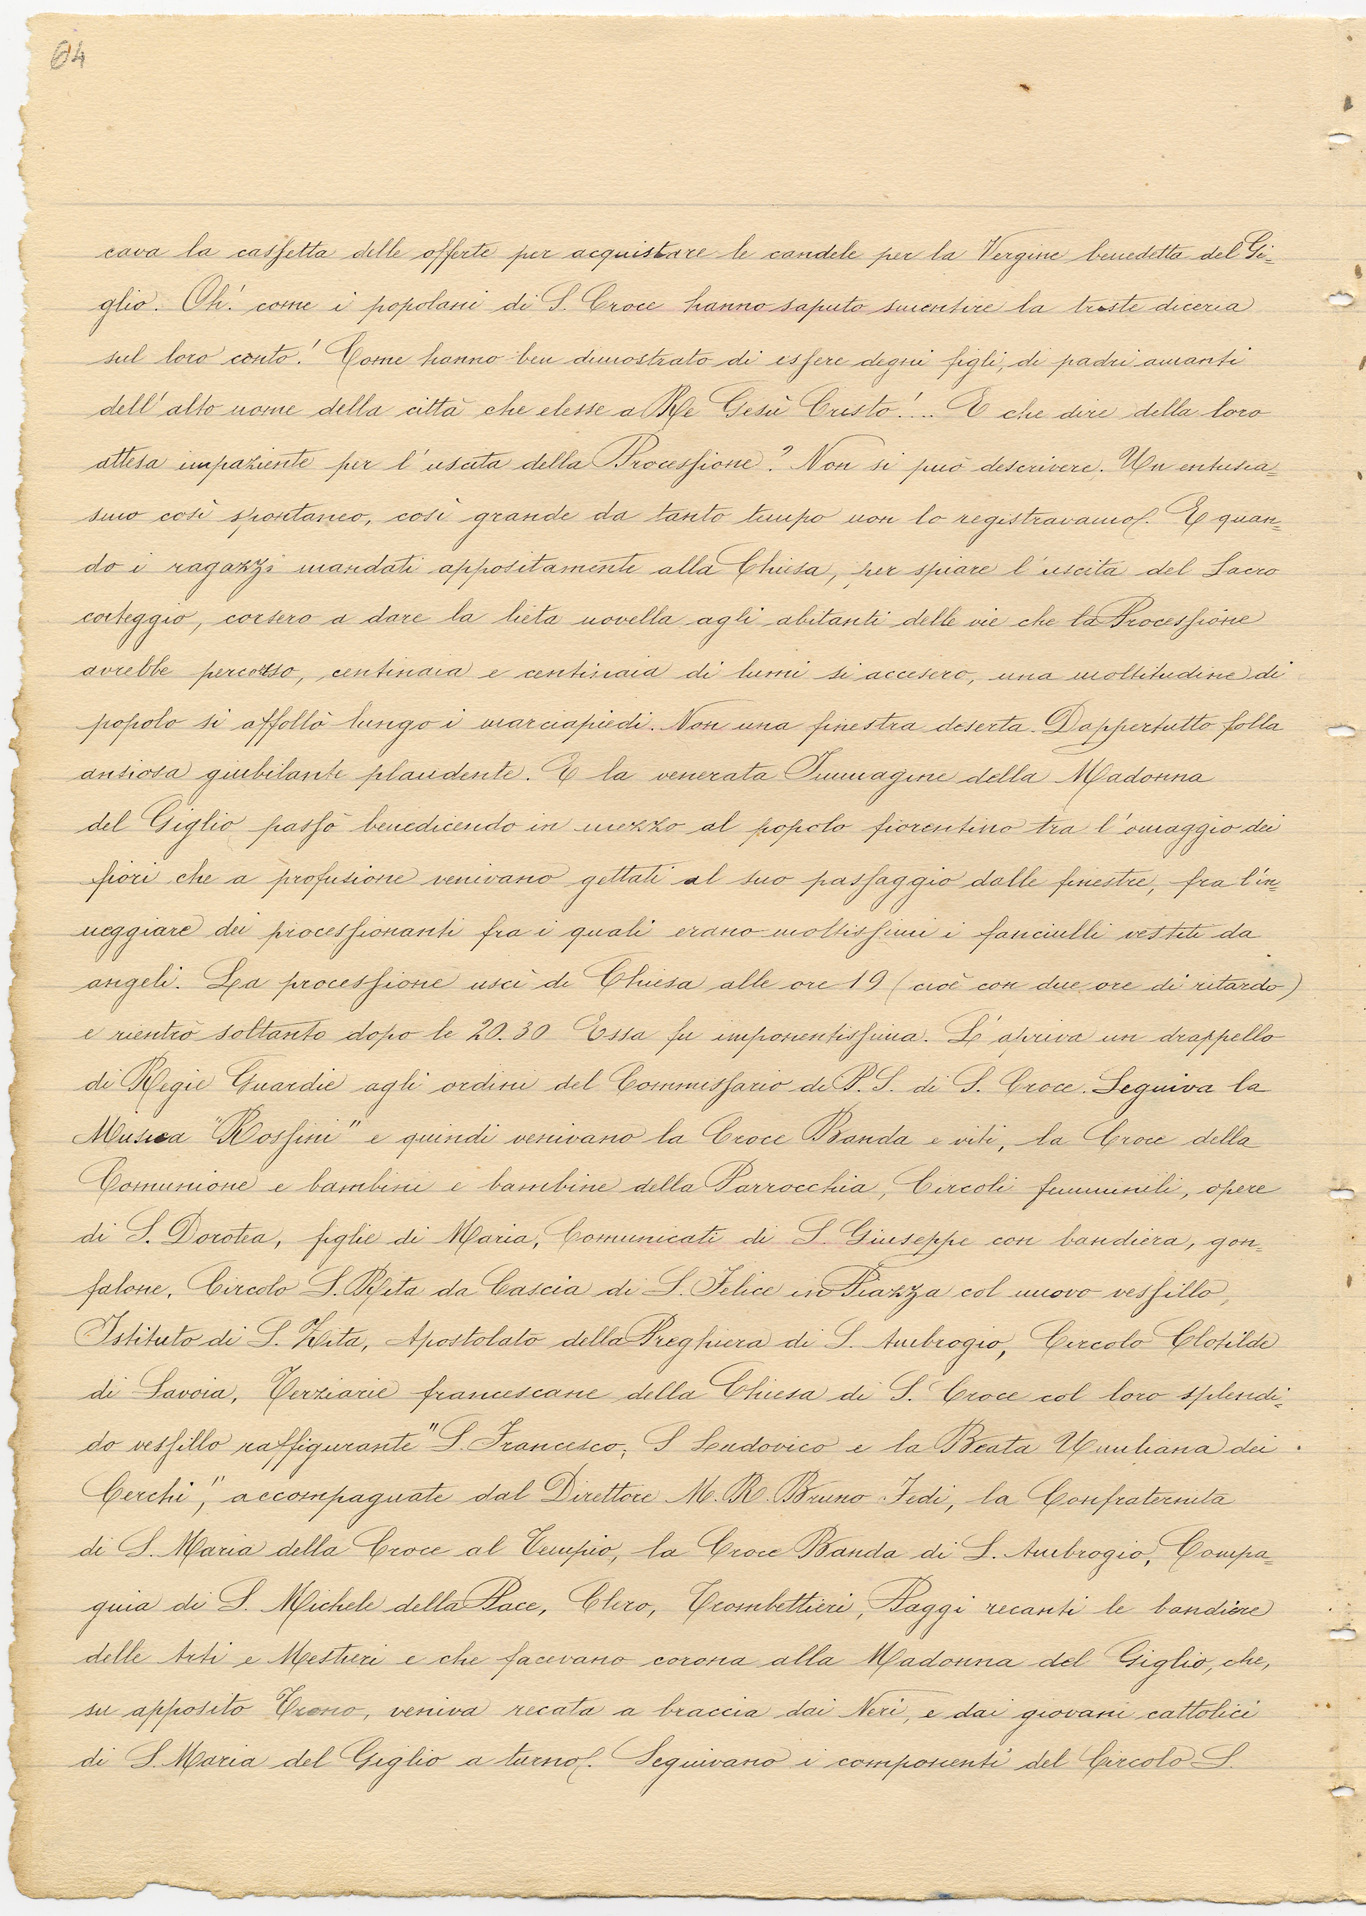 64
cava la cassetta delle offerte per acquistare le candele per la Vergine benedetta del Gi-
glio. Oh! come i popolani di S. Croce hanno saputo smentire la triste diceria
sul loro conto! Come hanno ben dimostrato di essere degni figli, di padri amanti
dell'alto nome della città che elesse a Re Gesù Cristo!... E che dire della loro
attesa impaziente per l'uscita della Processione? Non si può descrivere. Un entusia=
smo così spontaneo, così grande da tanto tempo non lo registravamo. E quan=
do i ragazzi mandati appositamente alla Chiesa, per spiare l'uscita del Sacro
corteggio, corsero a dare la lieta novella agli abitanti delle vie che la Processione
avrebbe percorso, centinaia e centinaia di lumi si accesero, una moltitudine di
popolo si affollò lungo i marciapiedi. Non una finestra deserta. Dappertutto folla
ansiosa giubilante plaudente. E la venerata Immagine della Madonna
del Giglio passò benedicendo in mezzo al popolo fiorentino tra l'omaggio dei
fiori che a profusione venivano gettati al suo passaggio dalle finestre, fra l'in=
neggiare dei processionanti fra i quali erano moltissimi i fanciulli vestiti da
angeli. La processione uscì di Chiesa alle ore 19 (cioè con due ore di ritardo)
e rientrò soltanto dopo le 20.30 Essa fu imponentissima. L'apriva un drappello
di Regie Guardie agli ordini del Commissario di P.S. di S. Croce. Seguiva la
Musica "Rossini" e quindi venivano la Croce Banda e viti, la Croce della
Comunione e bambini e bambine della Parrocchia, Circoli femminili, opere
di S. Dorotea, figlie di Maria, Comunicati di S. Giuseppe con bandiera, gon=
falone, Circolo S. Rita da Cascia di S. Felice in Piazza col nuovo vessillo,
Istituto di S. Zita, Apostolato della Preghiera di S. Ambrogio, Circolo Clotilde
di Savoia, Terziarie francescane della Chiesa di S. Croce col loro splendi=
do vessillo raffigurante "S. Francesco, S Lodovico e la Beata Umiliana dei
Cerchi", accompagnate dal Direttore M. R. Bruno Fedi, la Confraternita
di S. Maria della Croce al Tempio, la Croce Banda di S. Ambrogio, Compa=
gnia di S. Michele della Pace, Clero, Trombettieri, Paggi recanti le bandiere
delle Arti e Mestieri e che facevano corona alla Madonna del Giglio, che,
su apposito Trono, veniva recata a braccia dai Neri, e dai giovani cattolici
di S. Maria del Giglio a turno. Seguivano i componenti del Circolo S.